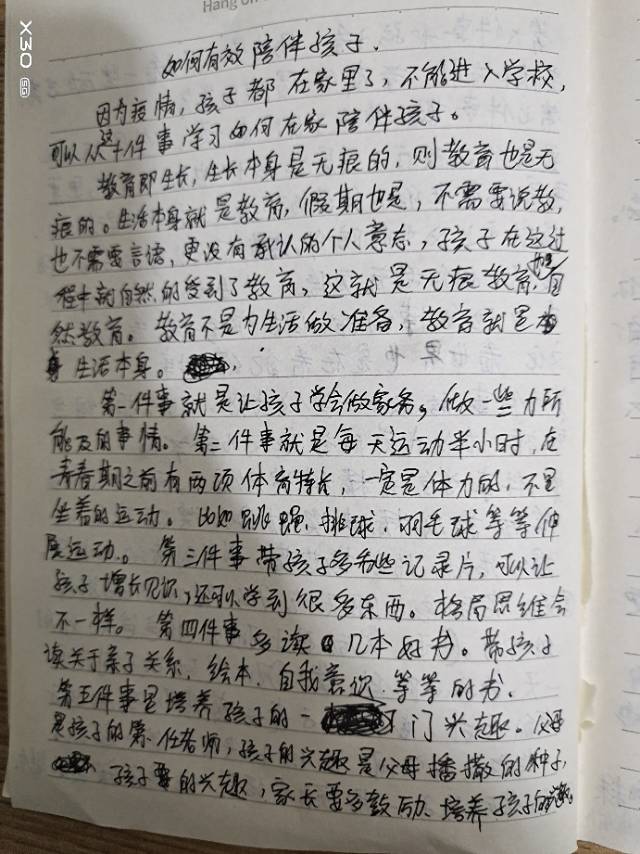 Hang on
X30
5G
如何有效陪伴孩子.
因为疫情,孩子都在家里了,不能进入学校,
可以从这十件事学习如何在家陪伴孩子。
教育即生长,生长本身是无痕的,则教育也是无
痕的。生活本身就是教育,假期也是,不需要说教,
也不需要言语,更没有承认的个人意志,孩子在这过
程中就自然的受到了教育,这就是无痕教育,也是自
然教育。教育不是为生活做准备,教育就是
生活本身。
第一件事就是让孩子学会做家务,做一些力所
能及的事情。第二件事就是每天运动半小时,在
青春期之前有两项体育特长,一定是体力的,不是
坐着的运动。比如跳绳.排球.羽毛球等等伸
展运动。第三件事带孩子多看些记录片,可以让
孩子增长见识,还可以学到很多东西。格局思维会
不一样。第四件事多读几本好书。带孩子
读关于亲子关系.绘本.自我意识.等等的书.
第五件事是培养孩子的一门兴趣。父母
是孩子的第一任老师,孩子的兴趣是父母播撒的种子,
孩子要的兴趣,家长要多鼓励、培养孩子的